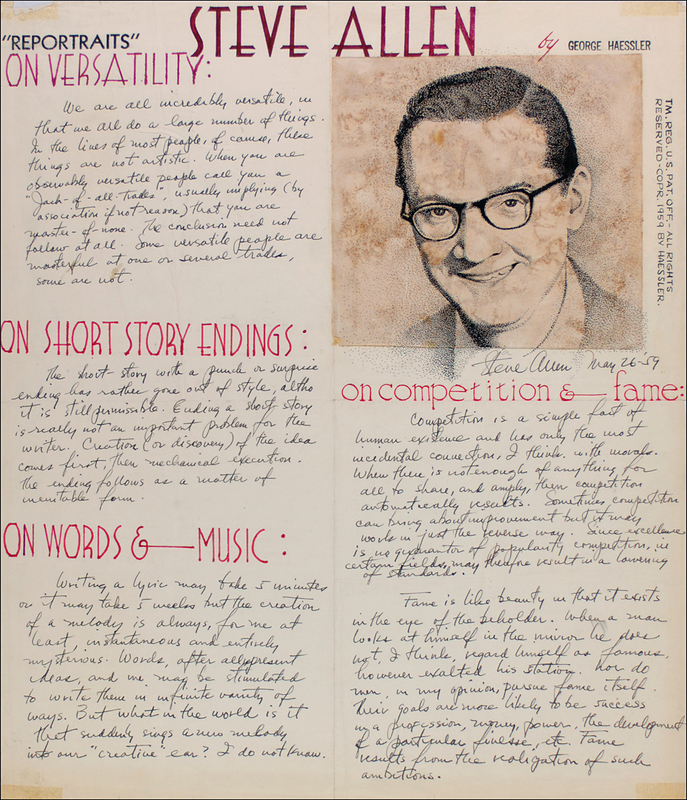 "REPORTRAITS"
STEVE ALLEN
by GEORGE HAESSLER
ON VERSATILITY:
We are all incredibly versatile, in
that we all do a large number of things.
In the lives of most people, of course, these
things are not artistic. When you are
observably versatile people call you a
"Jack-of-all-trades", usually implying (by
association if not reason) that you are
master-of-none. The conclusion need not
follow at all. Some versatile people are
masterful at one or several trades,
some are not.
TM. REG. U.S. PAT. OFF.-ALL RIGHTS
RESERVED-COPR. 1959 BY HAESSLER.
Steve Allen May 26-59
ON SHORT STORY ENDINGS:
The short story with a punch or surprise
ending has rather gone out of style, altho
it is still permissible. Ending a short story
is really not an important problem for the
writer. Creation (or discovery) of the idea
comes first, then mechanical execution.
The ending follows as a matter of
inevitable form.
ON WORDS & MUSIC:
Writing a lyric may take 5 minutes
or it may take 5 weeks but the creation
of a melody is always, for me at
least, instantaneous and entirely
mysterious. Words, after all, present
ideas, and we may be stimulated
to write them in infinite variety of
ways. But what in the world is it
that suddenly sings a new melody
into our "creative" ear? I do not know.
on competition & fame:
Competition is a simple fact of
human existence and has only the most
incidental connection, I think, with morals.
When there is not enough of anything for
all to share, and amply, then competition
automatically results. Sometimes competition
can bring about improvement but it may
work in just the reverse way. Since excellence
is no guarantor of popularity competition, in
certain fields, may therefore result in a lowering
of standards.
Fame is like beauty in that it exists
in the eye of the beholder. When a man
looks at himself in the mirror he does
not, I think, regard himself as famous,
however exalted his station. Nor do
men, in my opinion, pursue fame itself.
Their goals are more likely to be success
in a profession, money, power, the development
of a particular finesse, etc. Fame
results from the realization of such
ambitions.